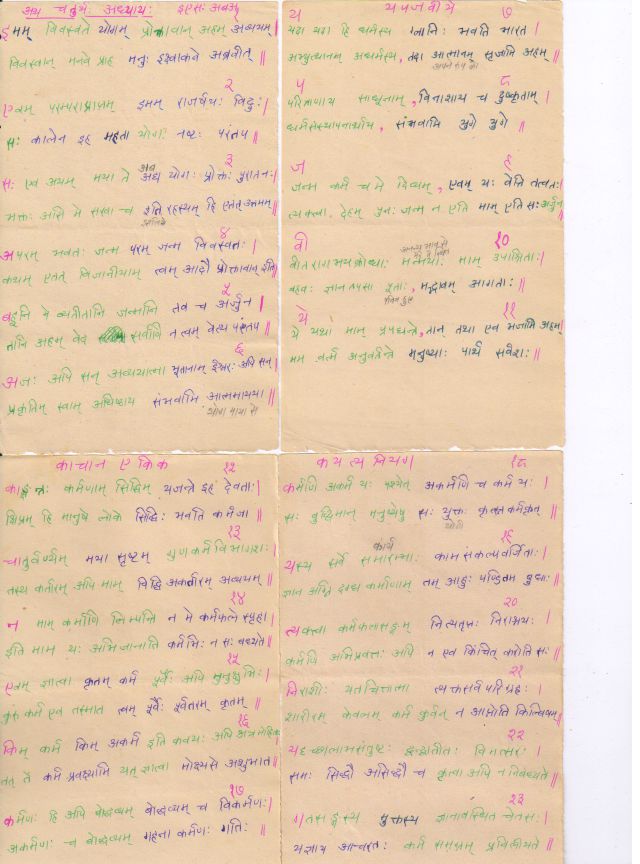 अथ चतुर्थः अध्यायः इएसः अबअ
इमम् विवस्वते योगम् प्रोक्तवान् अहम् अव्ययम्
विवस्वान् मनवे प्राह मनुः इक्ष्वाकवे अब्रवीत्
२
एवम् परम्पराप्राप्तम् इमम् राजर्षयः विदुः
सः कालेन इह महता योगः नष्टः परंतप ॥
३
अद्य
सः एव अयम् मया ते योगः प्रोक्तः पुरातनः
भक्तः असि मे सखा च इति रहस्यम् हि एतत् उत्तमम्
४
अपरम् भवतः जन्म परम् जन्म विवस्वतः ।
कथम् एतत् विजानीयाम् त्वम् आदौ प्रोक्तवान् इति
५
बहूनि मे व्यतीतानि जन्मानि तव च अर्जुन
तानि अहम् वेद सर्वाणि न त्वम् वेत्थ परंतप
६
अजः अपि सन् अव्ययात्मा भूतानाम् ईश्वरः अपि सन्
प्रकृतिम् स्वाम् अधिष्ठाय संभवामि आत्ममायया ॥
योग माया से
य प ज वी ये
७
यदा यदा हि धर्मस्य ग्लानिः भवति भारत
अभ्युत्थानम् अधर्मस्य, तदा आत्मानम् सृजामि अहम्
अपने रूप को
८
परित्राणाय साधूनाम्, विनाशाय च दुष्कृताम्
धर्मसंस्थापनार्थाय, संभवामि युगे युगे ॥
९
जन्म कर्म च मे दिव्यम्, एवम् यः वेत्ति तत्वतः
त्यक्त्वा देहम् पुनः जन्म न एति माम् एति सः अर्जुन
१०
वीतरागभयक्रोधाः मन्मयाः माम् उपाश्रिताः
बहवः ज्ञानतपसा पूताः, मद्भावम् आगताः ॥
पवित्र हुए
११
ये यथा माम् प्रपद्यन्ते, तान् तथा एव भजामि अहम्
मम वर्त्म अनुवर्तन्ते मनुष्याः पार्थ सर्वशः ॥
का चा न ए कि क
१२
काङ्क्षन्तः कर्मणाम् सिद्धिम् यजन्ते इह देवताः
क्षिप्रम् हि मानुषे लोके सिद्धिः भवति कर्मजा ॥
१३
चातुर्वर्ण्यम् मया सृष्टम् गुणकर्मविभागशः
तस्य कर्तारम् अपि माम् विद्धि अकर्तारम् अव्ययम् ॥
१४
न माम् कर्माणि लिम्पन्ति न मे कर्मफले स्पृहा
इति माम् यः अभिजानाति कर्मभिः न सः बध्यते ॥
१५
एवम् ज्ञात्वा कृतम् कर्म पूर्वैः अपि मुमुक्षुभिः
कुरु कर्म एव तस्मात् त्वम् पूर्वैः पूर्वतरम् कृतम् ॥
१६
किम् कर्म किम् अकर्म इति कवयः अपि अत्र मोहिताः
तत् ते कर्म प्रवक्ष्यामि यत् ज्ञात्वा मोक्ष्यसे अशुभात्
१७
कर्मणः हि अपि बोद्धव्यम् बोद्धव्यम् च विकर्मणः
अकर्मणः च बोद्धव्यम् गहना कर्मणः गतिः ॥
क य त्य नि य ग
१८
कर्मणि अकर्म यः पश्येत् अकर्मणि च कर्म यः
सः बुद्धिमान् मनुष्येषु सः युक्तः कृत्स्नकर्मकृत्
योगी
१९
कार्य
यस्य सर्वे समारम्भाः कामसंकल्पवर्जिताः
ज्ञान अग्नि दग्ध कर्माणाम् तम् आहुः पण्डितम् बुधाः
२०
त्यक्त्वा कर्मफलासङ्गम् नित्यतृप्तः निराश्रयः
कर्मणि अभिप्रवृत्तः अपि न एव किंचित् करोति सः
२१
निराशीः यतचित्तात्मा त्यक्तसर्वपरिग्रहः ।
शारीरम् केवलम् कर्म कुर्वन् न आप्नोति किल्बिषम्
२२
यदृच्छालाभसंतुष्टः द्वन्द्वातीतः विमत्सरः ।
समः सिद्धौ असिद्धौ च कृत्वा अपि न निबध्यते
२३
गतसङ्गस्य मुक्तस्य ज्ञानावस्थित चेतसः
यज्ञाय आचरतः कर्म समग्रम् प्रविलीयते ॥